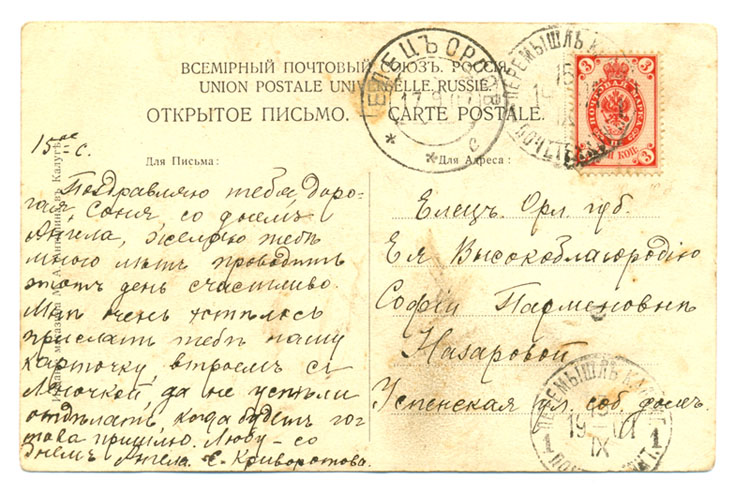 ВСЕМІРНЫЙ ПОЧТОВЫЙ СОЮЗЪ. РОССІЯ.
UNION POSTALE UNIVERSELLE. RUSSIE.
ОТКРЫТОЕ ПИСЬМО. CARTE POSTALE.
ЕЛЕЦЪ ОРЛОВ
17 9 07
ПЕРЕМЫШЛЬ
15
IX
3 3
ПОЧТОВАЯ МАРКА
КОП.
3
15го с.
Для Письма: Для Адреса:
Поздравляю тебя, доро-
гая Соня, со днемъ
Ангела, желаю тебѣ
много лѣтъ проводить
этотъ день счастливо.
Мнѣ очень хотѣлось
прислать тебѣ нашу
карточку, втроемъ съ
Лёночкой, да не успѣли
отдѣлать, когда будетъ го-
това пришлю. Любу - со
днемъ Ангела. С. Криворотова.
Елецъ. Орл. губ.
Ея Высокоблагородію
Софіи Парменовнѣ
Назаровой
Успенская ул. соб. домъ.
ПЕРЕМЫШЛЬ КАЛУЖ. Г.
1 19 IX 1
въ Калугѣ